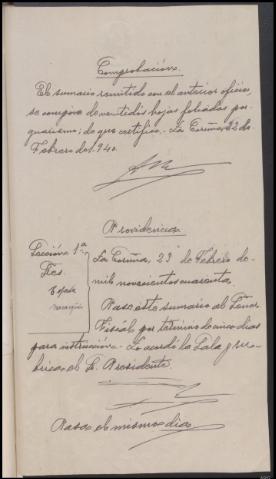 Comprobación.
El sumario remitido con el anterior oficio,
se compone de veintidós hojas foliadas por
guarismo; de que certifico. La Coruña, 22 de
Febrero de 1.940.
Providencia
Sección 1ª
Tres.
La Coruña, 23 de Febrero de
mil novecientos cuarenta.
Pase este sumario al Señor
Fiscal por término de cinco días
para instrucción. Lo acordó la Sala y ru-
brica el S. Presidente.
Pasa el mismo día